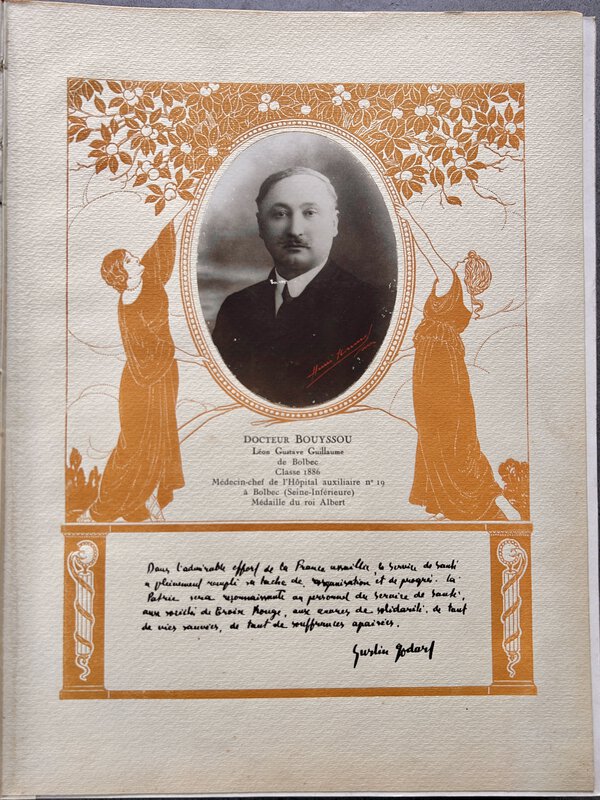 Docteur Bouyssou
Léon Gustave Guillaume
de Bolbec
Classe 1886
Médecin-chef de l'Hôpital auxiliaire nº 19
à Bolbec (Seine-Inférieure)
Médaille du roi Albert
Dans l'admirable effort de la France nouvelle, le Service de Santé
a pleinement rempli sa tâche de réorganisation et de progrès. La
Patrie sera reconnaissante au personnel du Service de Santé,
aux sociétés de Croix Rouge, aux œuvres de solidarité, de tant
de vies sauvées, de tant de souffrances apaisées.
Justin Godart